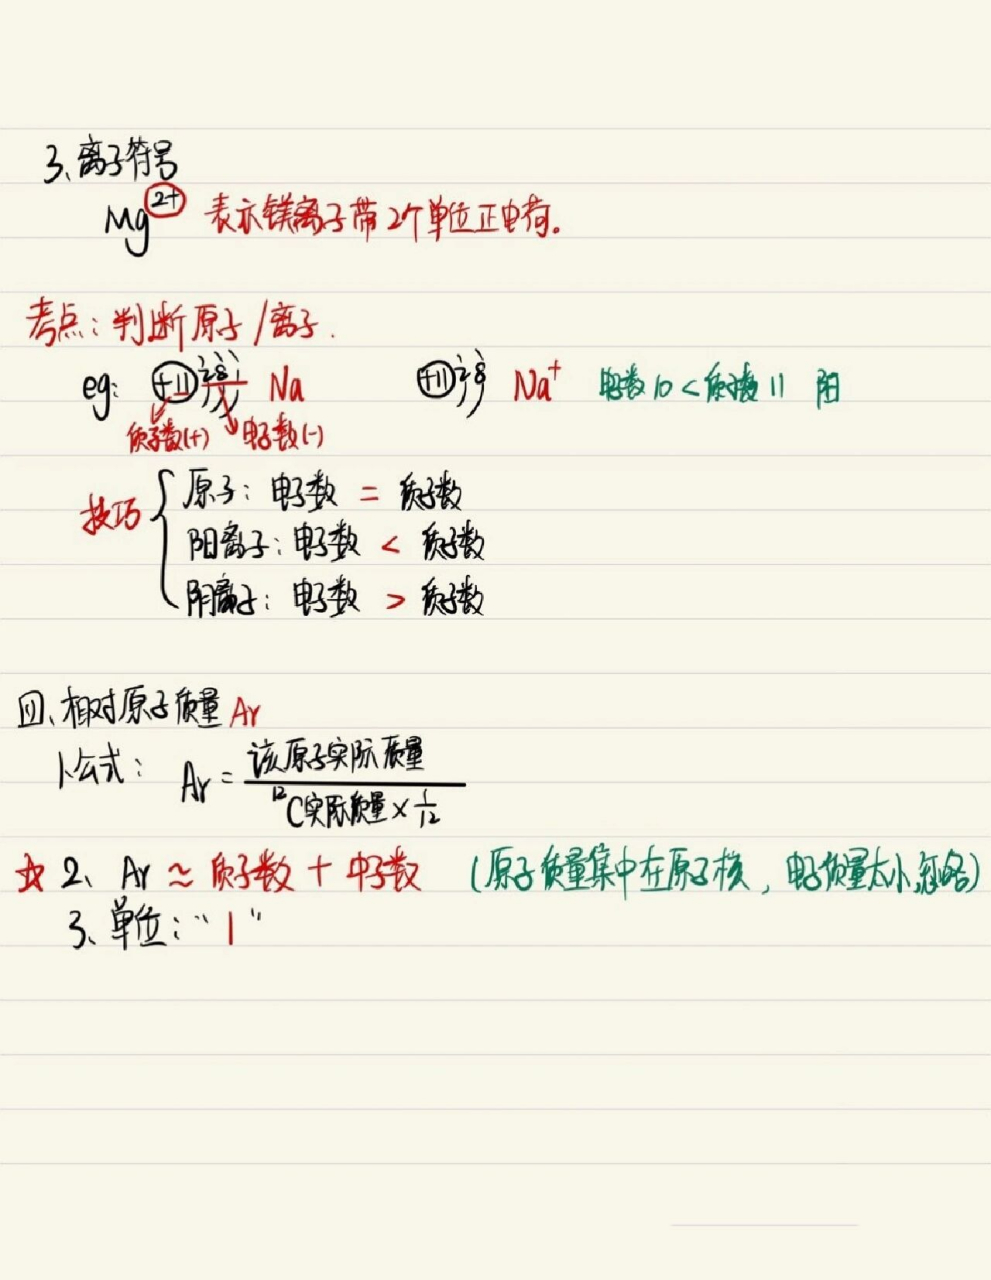 3、离子符号
Mg²⁺ 表示镁离子带2个单位正电荷。
考点：判断原子/离子.
eg: +11 2 8 1 Na +11 2 8 Na⁺ 电子数10<质子数11 阳
质子数(+) 电子数(-)
技巧
原子：电子数 = 质子数
阳离子：电子数 < 质子数
阴离子：电子数 > 质子数
四、相对原子质量 Ar
1、公式： Ar = 该原子实际质量 / ¹²C实际质量×1/12
☆ 2、Ar ≈ 质子数 + 中子数 (原子质量集中在原子核，电子质量太小,忽略)
3、单位：“1”